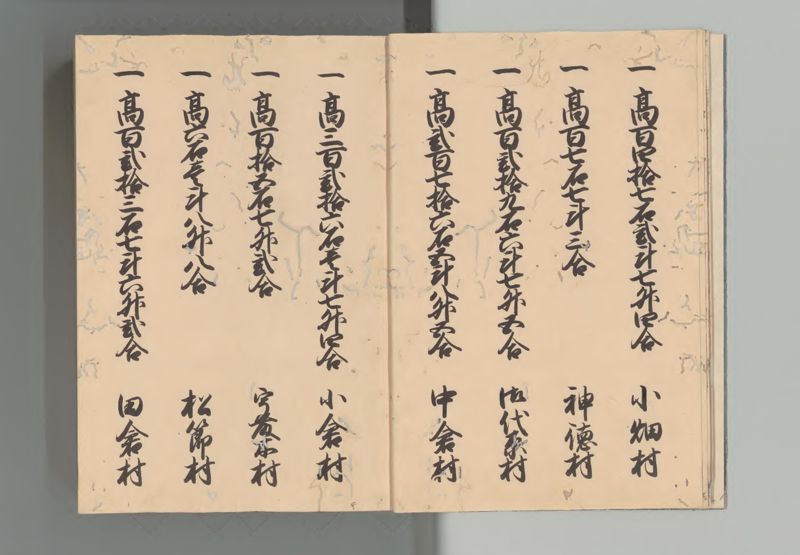 一 高百四拾七石弐斗七升四合 小畑村
一 高百七石七斗三合 神徳村
一 高百弐拾九石六斗七升五合 御代原村
一 高弐百七拾六石五斗八升五合 中倉村
一 高三百弐拾六石壱斗七升四合 小倉村
一 高百拾五石七升弐合 村
一 高六石壱斗八升八合 松節村
一 高百弐拾三石七斗六升弐合 田倉村